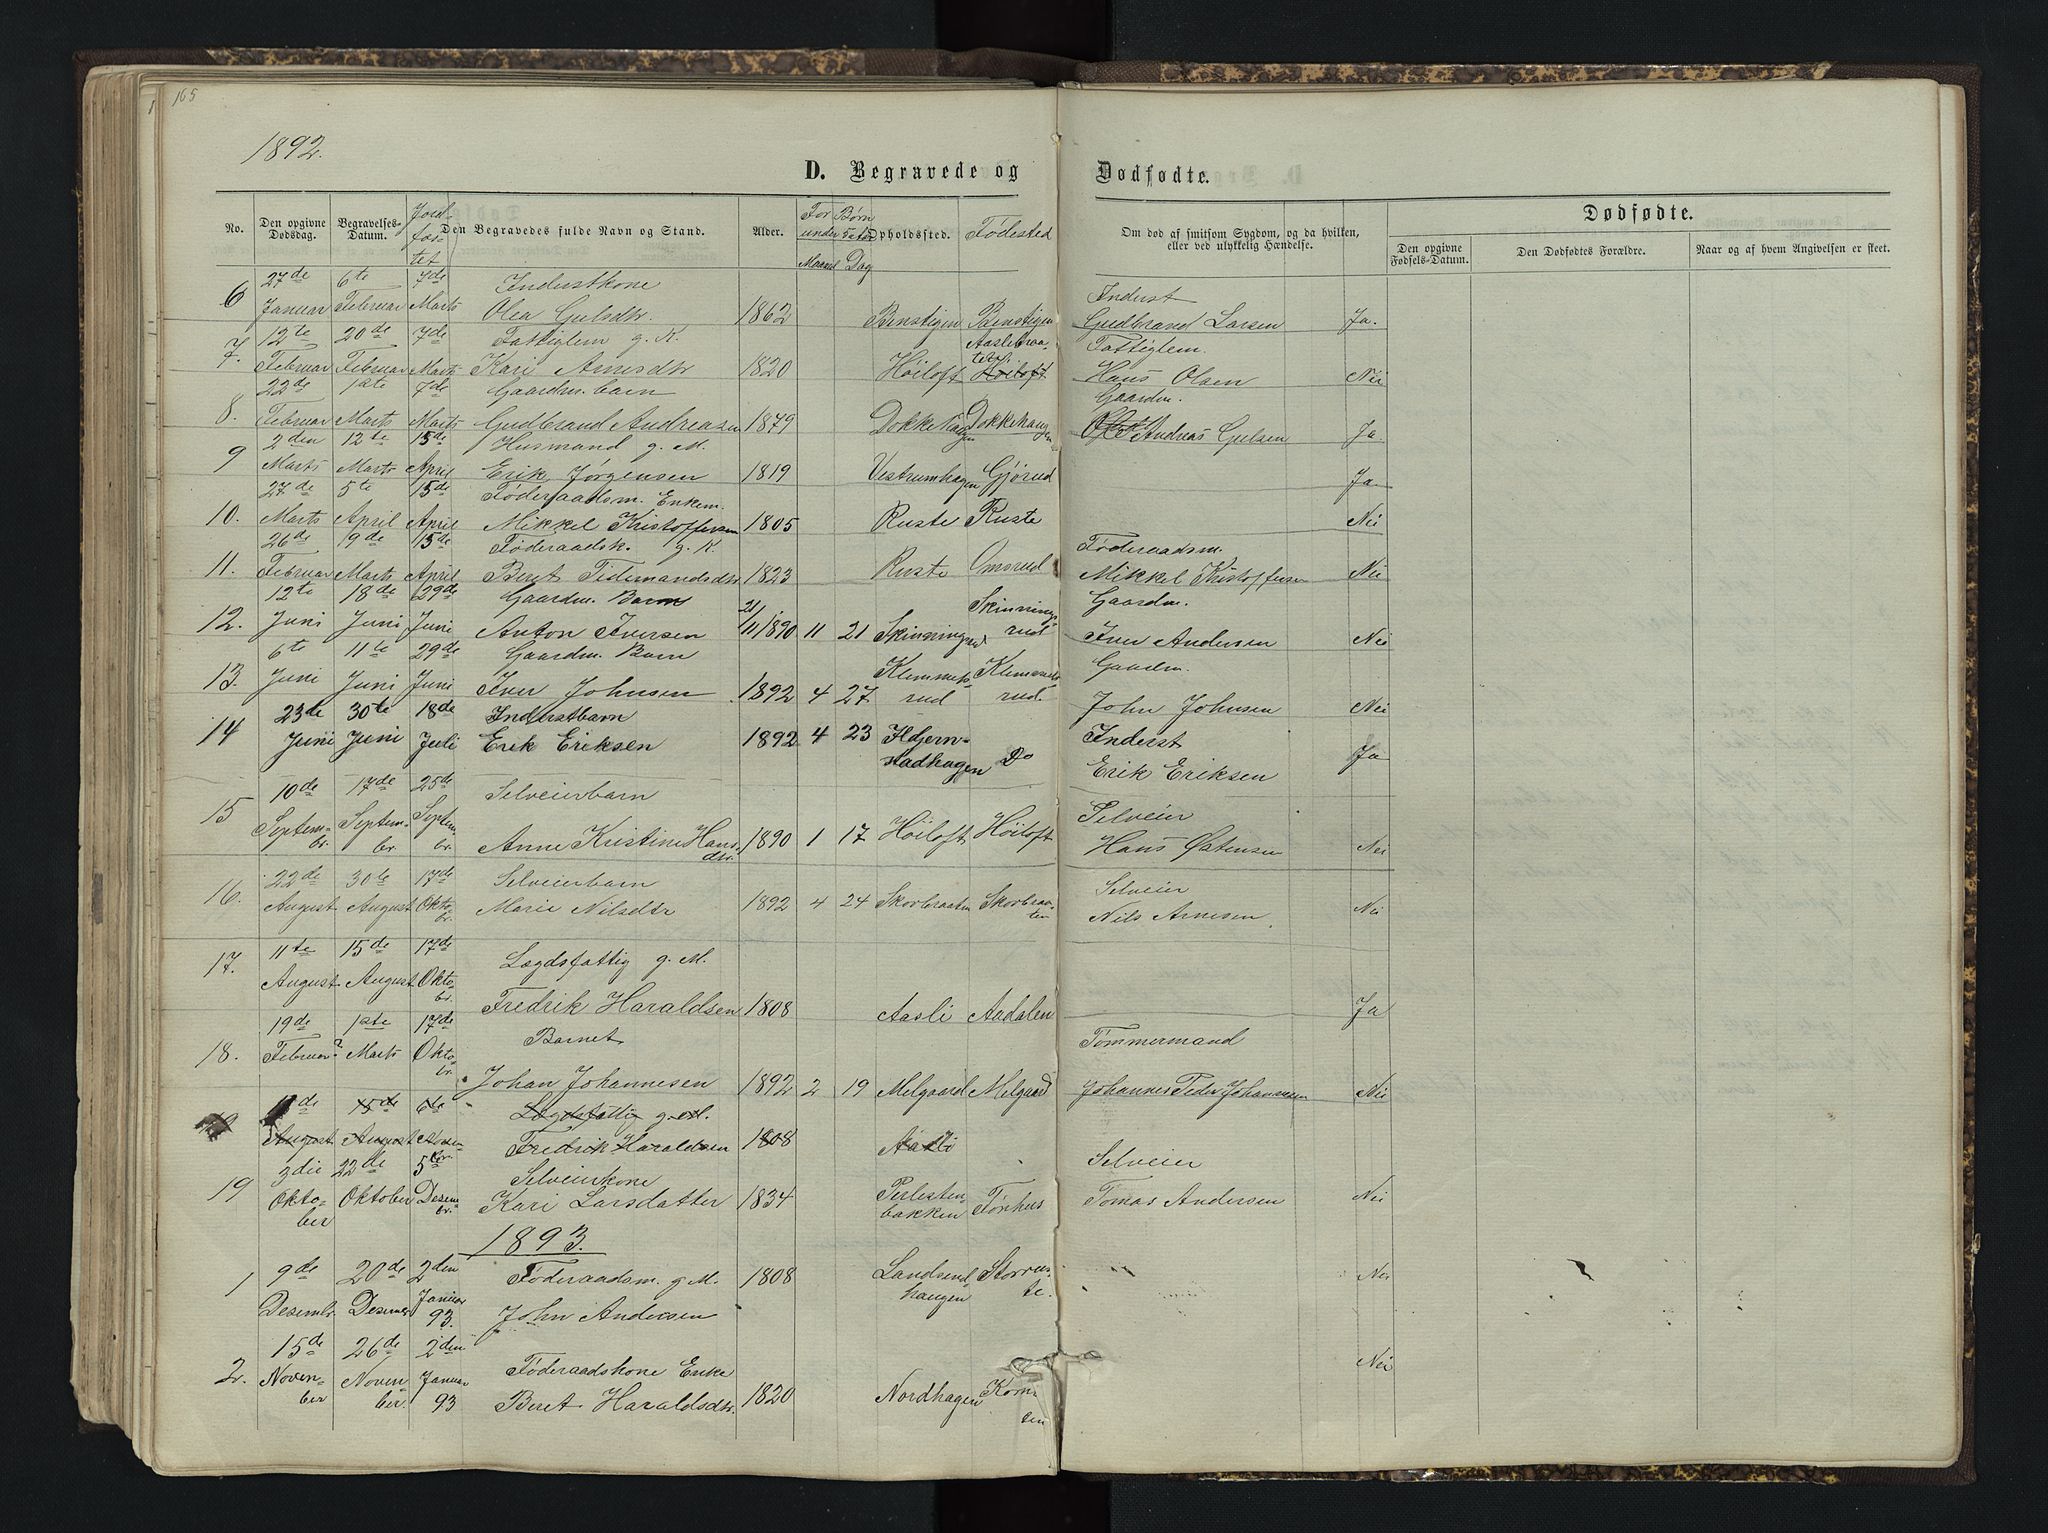 165
1892.
D. Begravede og Dødfødte.
No. Den opgivne Dødsdag. Begravelses-Datum. Jord-fæs-tet Den Begravedes fulde Navn og Stand. Alder. For Børn under Maaned Dag Opholdssted. Fødested Om død af smitsom Sygdom, og da hvilken, eller ved ulykkelig Hændelse. Dødfødte. Den opgivne Fødsels-Datum. Den Dødfødtes Forældre. Naar og af hvem Angivelsen er skeet.
27de 6te 7de Inderstkone Inderst
6 Januar Februar Marts Olea Gulsdtr. 1862 Benstigen Benstigen Gudbrand Larsen Ja.
12te 20de 7de Fattiglem g. K. Fattiglem.
7. Februar Februar Marts Kari Arnesdtr 1820 Høiloft Høiloft Hans Olsen Nei
22de 1ste 7de Gaardm. barn Gaardm.
8. Februar Marts Marts Gudbrand Andreasen 1879 Dokkehaugen Dokkehaugen Andreas Gulsen Ja.
2den 12te 15de Husmand g. M.
9 Marts Marts April Erik Jørgensen 1819 Vestrumhagen Gjørud Ja
27de 5te 15de Føderaadsm. Enkem.
10. Marts April April Mikkel Kristoffersen 1805 Ruste Ruste Nei
26de 19de 15de Føderaadsk. g. K. Føderaadsm.
11. Februar Marts April Beret Tidemandsdtr 1823 Ruste Omsrud Mikkel Kristoffersen Nei
12te 18de 29de Gaardm. Barn 21/11 Gaardm.
12. Juni Juni Juni Anton Iversen 1890 11 21 Skinningsrud Skinningsrud Iver Andersen Nei
6te 11te 29de Gaardm. Barn Gaardm.
13. Juni Juni Juni Iver Johnsen 1892 4 27 Klemmetsrud Klemmetsrud John Johnsen Nei
23de 30te 18de Inderstbarn
14 Juni Juni Juli Erik Eriksen 1892 4 23 Hdjern-stadhagen Do Inderst Erik Eriksen Ja
10de 17de 25de Selveierbarn Selveier
15 Septem-br. Septem-br. Septem-br. Anne Kristine Hansdtr. 1890 1 17 Høiloft Høiloft Hans Østensen Nei
22de 30te 17de Selveierbarn Selveier
16. August August Okto-br. Marie Nilsdtr 1892 4 24 Skorbraaten Skorbraaten Nils Arnesen. Nei
11te 15de 17de Lægdsfattig g. M.
17. August August Okto-br. Fredrik Haraldsen 1808 Aasli Aadalen Ja
19de 1ste 17de Barnet Tømmermand
18. Februar? Marts Okto-br. Johan Johannesen 1892 2 19 Melgaard Melgaard Johannes Peder Johannesen Nei
15de 6te Lægdsfattig g. M.
August August Fredrik Haraldsen 1808 Aasli
3die 22de 5te Selveierkone Selveier
19 Okto-ber Oktober Desem-br. Kari Larsdatter 1834 Perlesten-bakken Fønhus Tomas Andersen Nei
1893.
1 9de 20de 2den Føderaadsm. g. M. 1808 Landsend-haugen Storrus-te. Nei
Desembr. Desember Januar 93. John Andersen
15de 26de 2den
2. Novem-ber Novem-ber. Januar 93 Føderaadskone Enke Beret Haraldsdtr. 1820 Nordhagen Nei